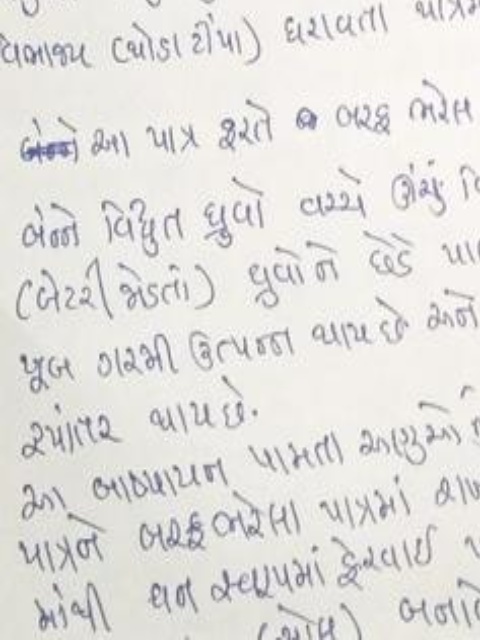 વિભાજ્ય (થોડા ટીંપા) ધરાવતા પાત્રમ
આ પાત્ર ફરતે બરફ ભરેલ
બંન્ને વિધુત ધ્રુવો વચ્ચે ઊંચું વિ
(બેટરી જોડતા) ધ્રુવોને છેડે પા
ખૂબ ગરમી ઉત્પન્ન થાય છે અને
રૂપાંતર થાય છે.
આ બાષ્પાયન પામતા અણુઓ
પાત્રને બરફ ભરેલા પાત્રમાં રાખ
માંથી ઘન સ્વરૂપમાં ફેરવાઈ
(સોલ) બનાવ